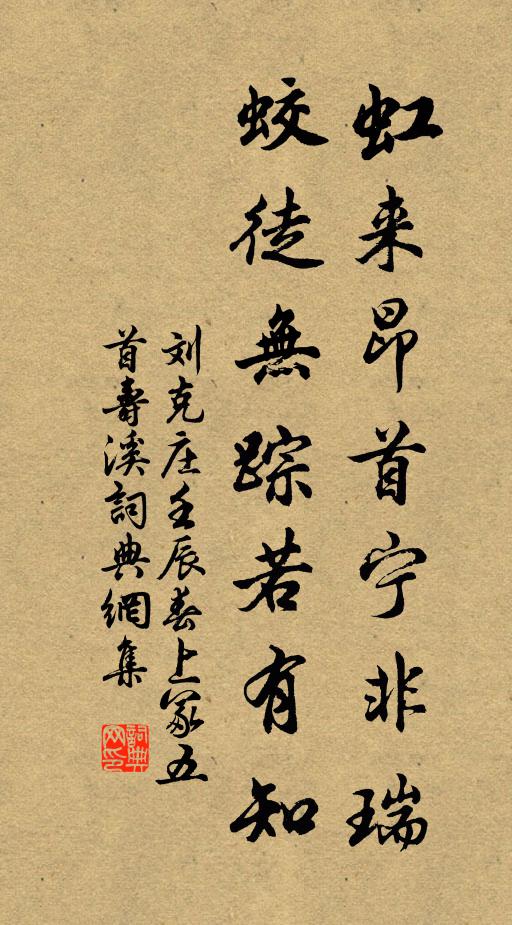 虹来昂首宁非瑞
蛟徒無踪若有知
刘克庄壬辰春上冢五
首壽溪詞典網集
詞典网印